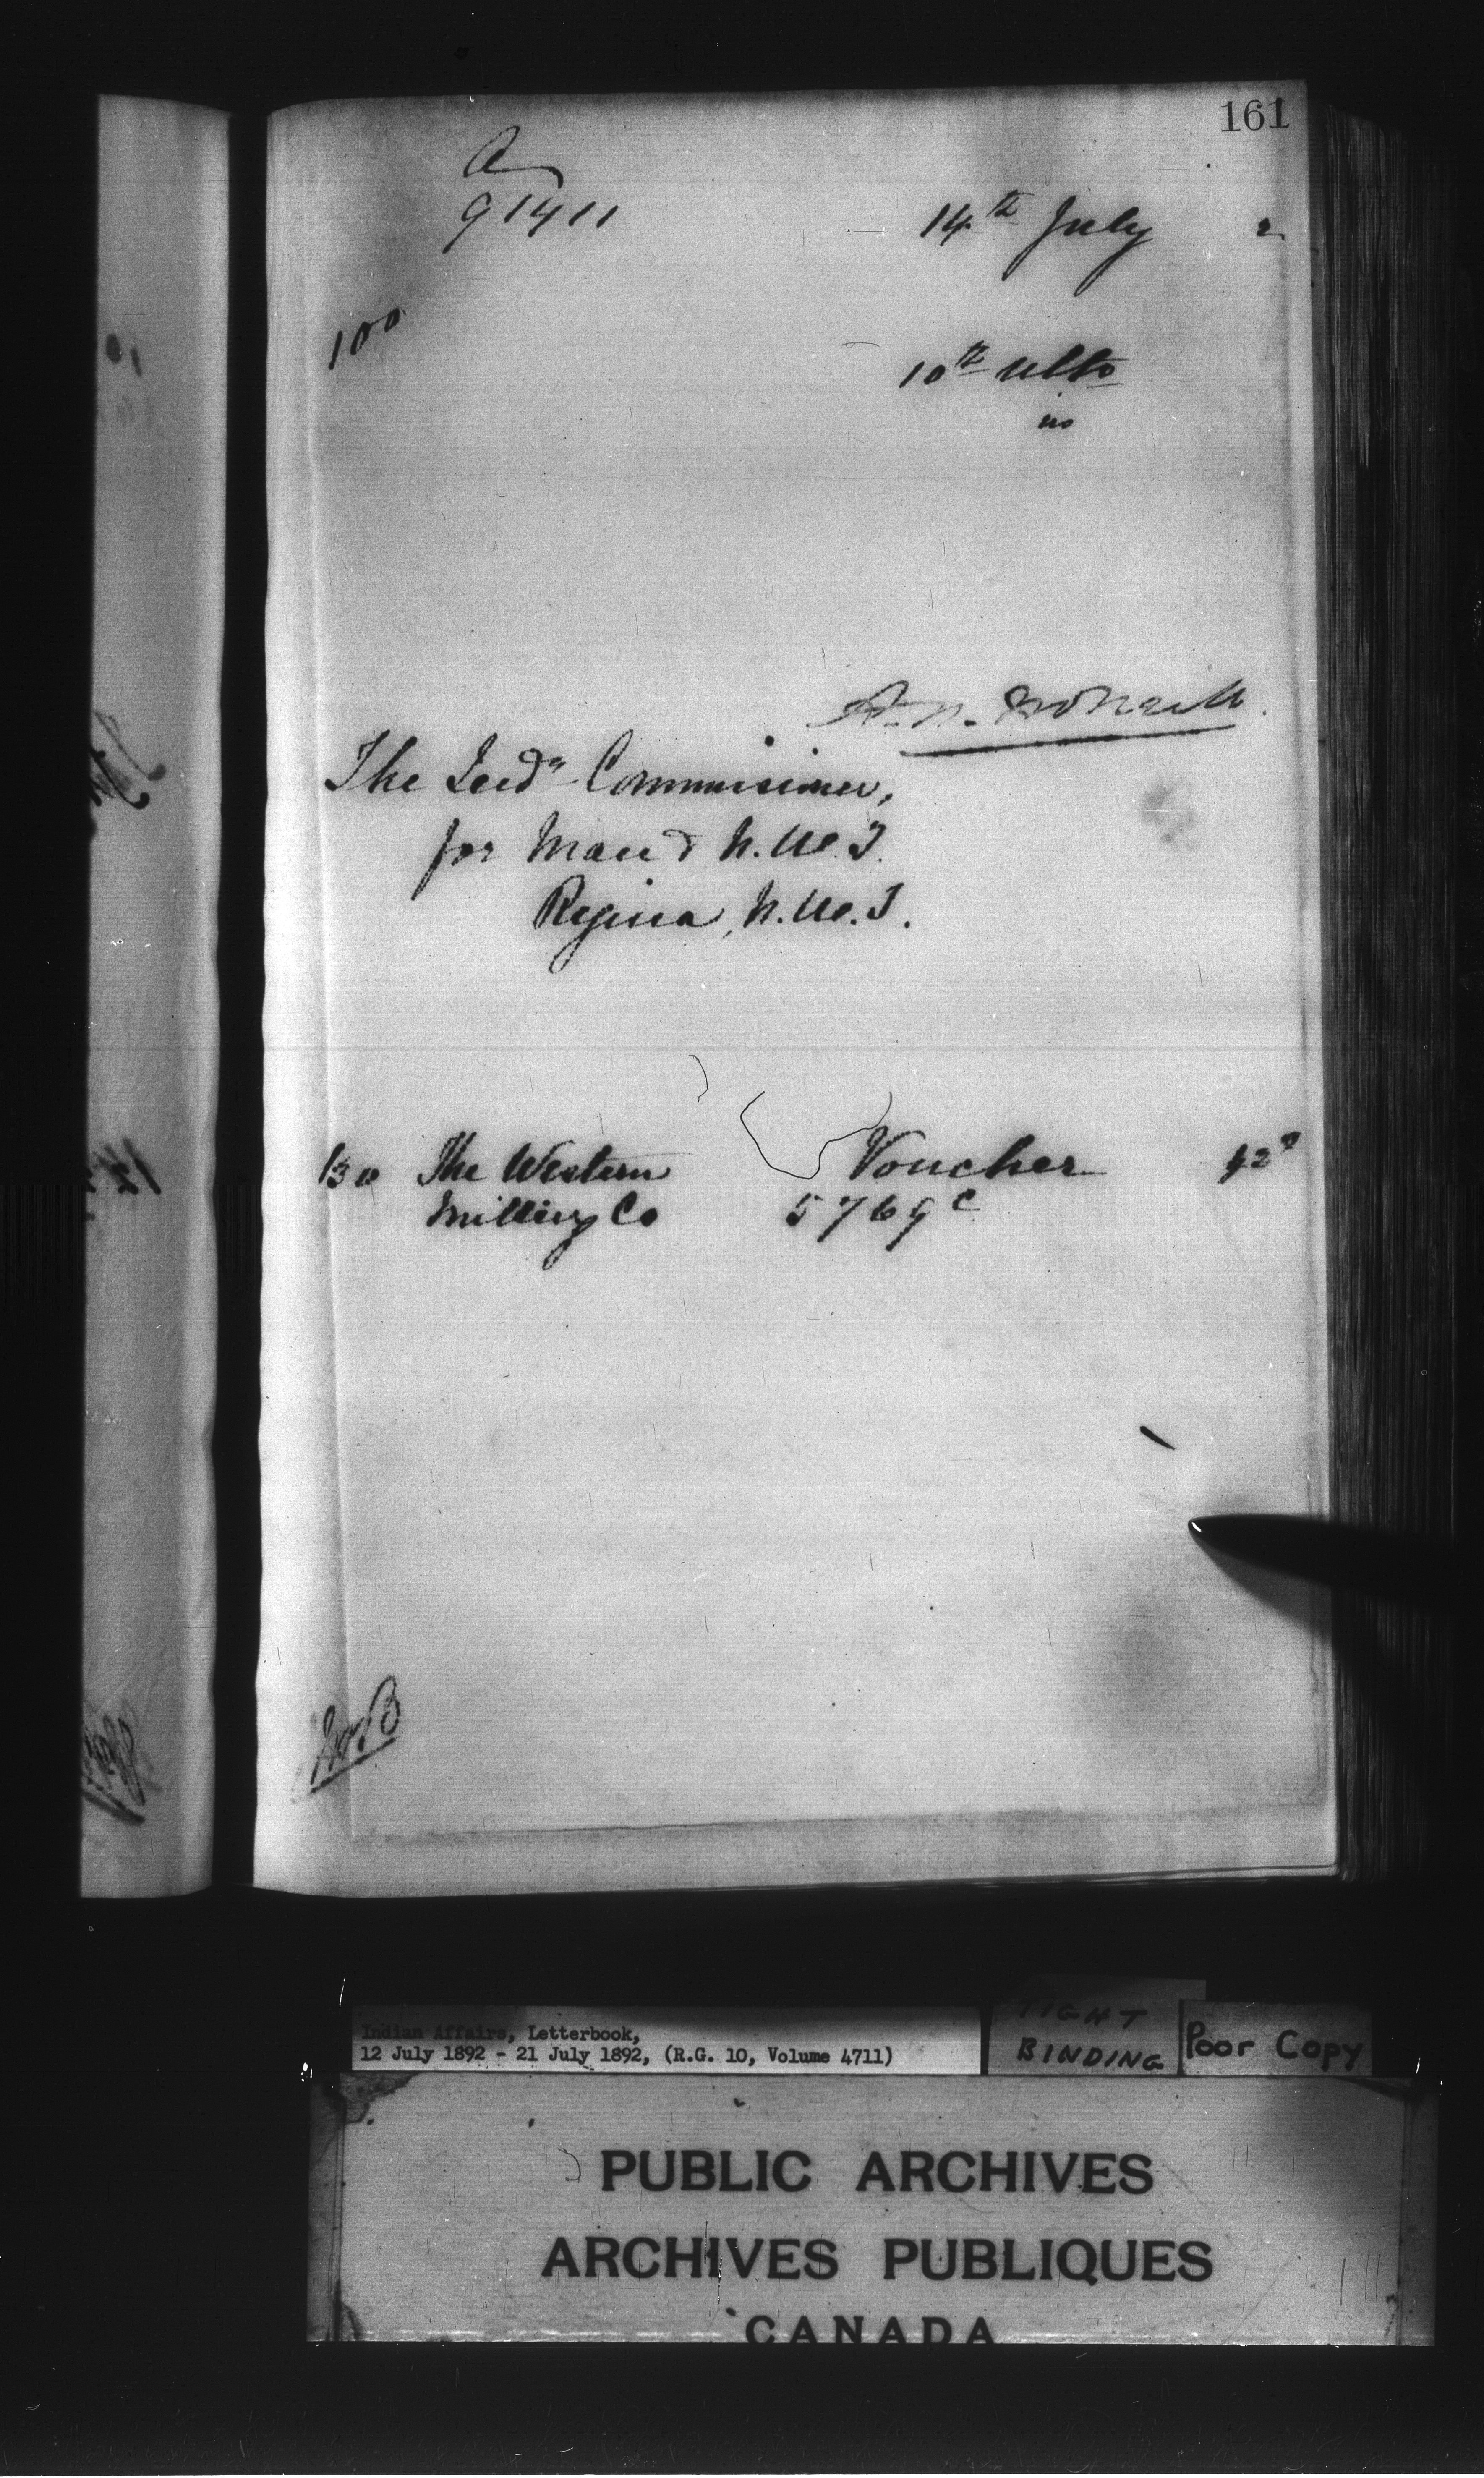 161
A
91411
14th July 2
100
10th ulto
in
The Indn Commissioner,
for Man & N.W.T.
Regina, N.W.T.
130 The Western Voucher 42
Milling Co 5769c
Indian Affairs, Letterbook,
12 July 1892 - 21 July 1892, (R.G. 10, Volume 4711)
TIGHT
BINDING
Poor Copy
PUBLIC ARCHIVES
ARCHIVES PUBLIQUES
CANADA